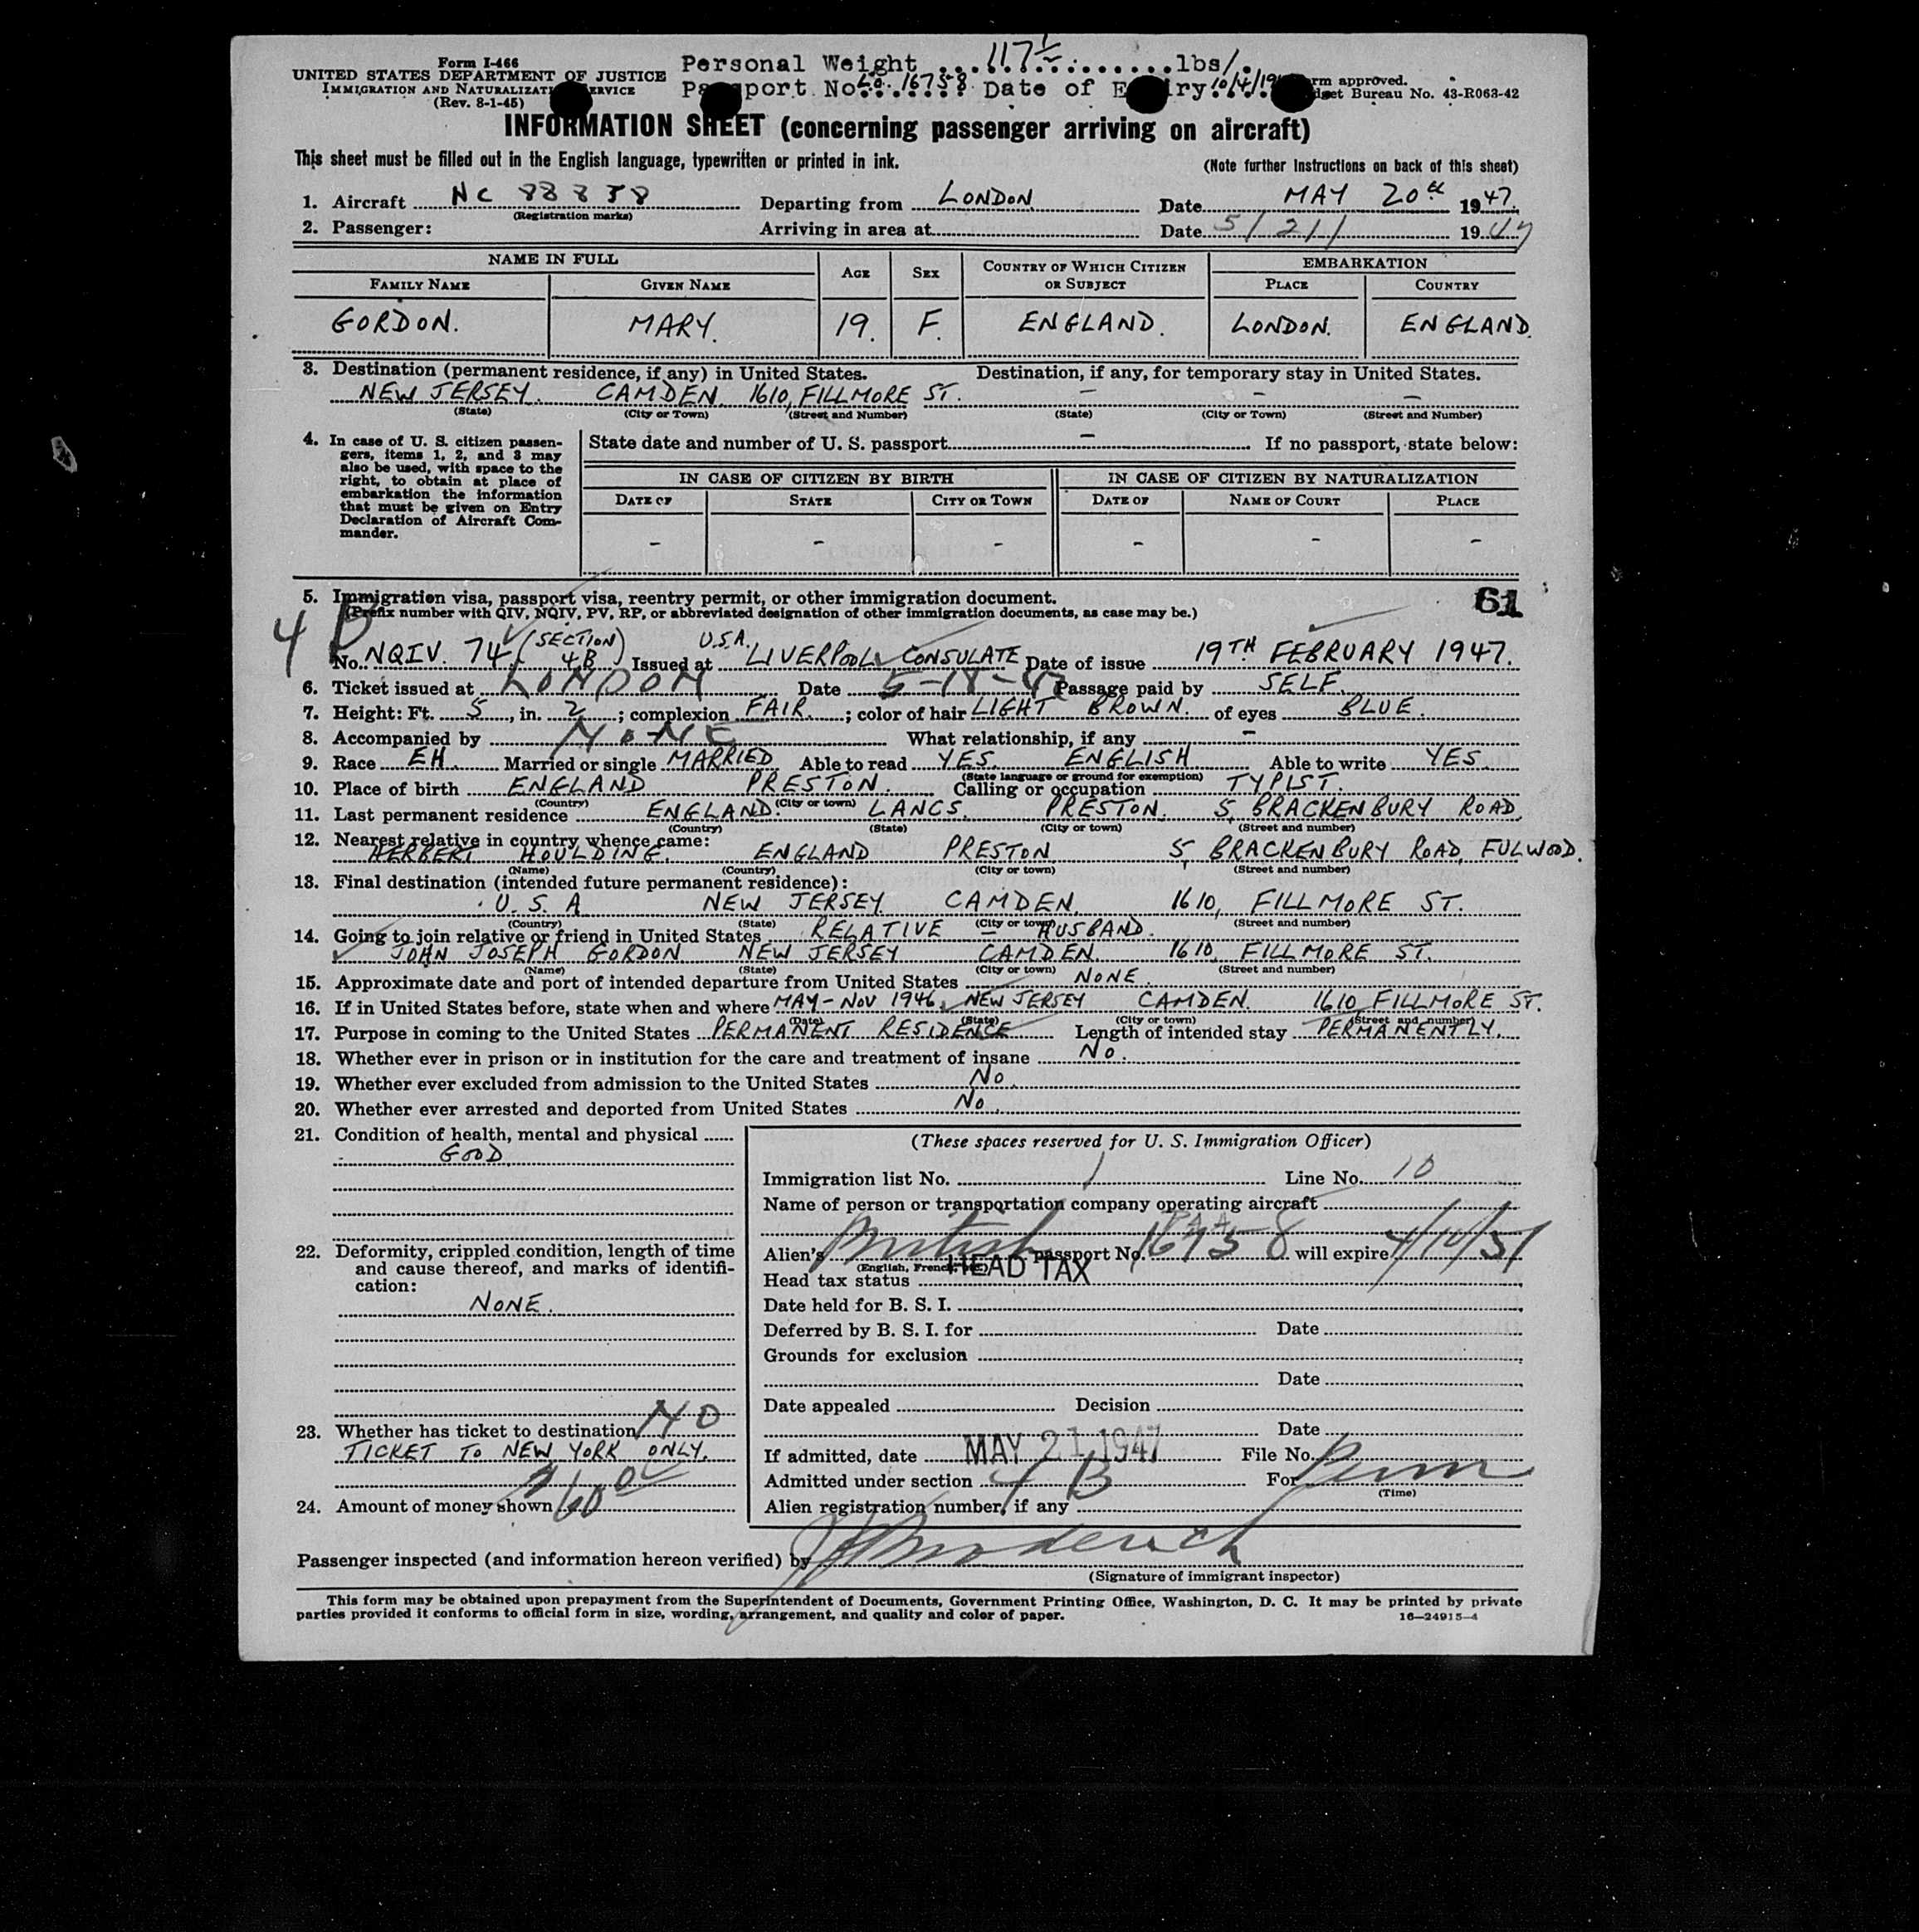 Form I-466
UNITED STATES DEPARTMENT OF JUSTICE
IMMIGRATION AND NATURALIZATION SERVICE
(Rev. 8-1-45)
Personal Weight ...117½...lbs/.
Passport No. Lo. 16758 Date of Expiry 10/4/19
Form approved.
Budget Bureau No. 43-R063-42
INFORMATION SHEET (concerning passenger arriving on aircraft)
This sheet must be filled out in the English language, typewritten or printed in ink. (Note further instructions on back of this sheet)
1. Aircraft NC 88838 Departing from LONDON Date MAY 20th 1947.
(Registration marks)
2. Passenger: Arriving in area at Date 5/21/ 1947
NAME IN FULL AGE SEX COUNTRY OF WHICH CITIZEN OR SUBJECT EMBARKATION
FAMILY NAME GIVEN NAME PLACE COUNTRY
GORDON. MARY. 19. F. ENGLAND. LONDON. ENGLAND.
3. Destination (permanent residence, if any) in United States. Destination, if any, for temporary stay in United States.
NEW JERSEY. CAMDEN. 1610, FILLMORE ST. - - -
(State) (City or Town) (Street and Number) (State) (City or Town) (Street and Number)
4. In case of U. S. citizen passen-
gers, items 1, 2, and 3 may
also be used, with space to the
right, to obtain at place of
embarkation the information
that must be given on Entry
Declaration of Aircraft Com-
mander.
State date and number of U. S. passport - If no passport, state below:
IN CASE OF CITIZEN BY BIRTH IN CASE OF CITIZEN BY NATURALIZATION
DATE OF STATE CITY OR TOWN DATE OF NAME OF COURT PLACE
- - - - - -
5. Immigration visa, passport visa, reentry permit, or other immigration document. 61
(Prefix number with QIV, NQIV, PV, RP, or abbreviated designation of other immigration documents, as case may be.)
4 B
No. NQIV. 74 (SECTION 4B) Issued at U.S.A. LIVERPOOL CONSULATE Date of issue 19TH FEBRUARY 1947.
6. Ticket issued at LONDON Date 5-18-47 Passage paid by SELF.
7. Height: Ft. 5, in. 2; complexion FAIR.; color of hair LIGHT BROWN. of eyes BLUE.
8. Accompanied by NONE What relationship, if any -
9. Race EH. Married or single MARRIED Able to read YES. ENGLISH Able to write YES
(State language or ground for exemption)
10. Place of birth ENGLAND PRESTON. Calling or occupation TYPIST.
(Country) (City or town)
11. Last permanent residence ENGLAND. LANCS. PRESTON. 5, BRACKENBURY ROAD,
(Country) (State) (City or town) (Street and number)
12. Nearest relative in country whence came:
HERBERT HOULDING. ENGLAND PRESTON 5, BRACKENBURY ROAD, FULWOOD.
(Name) (Country) (City or town) (Street and number)
13. Final destination (intended future permanent residence):
U. S. A NEW JERSEY. CAMDEN. 1610, FILLMORE ST.
(Country) (State) (City or town) (Street and number)
14. Going to join relative or friend in United States RELATIVE - HUSBAND.
JOHN JOSEPH GORDON NEW JERSEY CAMDEN. 1610, FILLMORE ST.
(Name) (State) (City or town) (Street and number)
15. Approximate date and port of intended departure from United States NONE.
16. If in United States before, state when and where MAY-NOV 1946. NEW JERSEY CAMDEN. 1610 FILLMORE ST.
(Date) (State) (City or town) (Street and number)
17. Purpose in coming to the United States PERMANENT RESIDENCE Length of intended stay PERMANENTLY.
18. Whether ever in prison or in institution for the care and treatment of insane NO.
19. Whether ever excluded from admission to the United States NO.
20. Whether ever arrested and deported from United States NO.
21. Condition of health, mental and physical
GOOD
22. Deformity, crippled condition, length of time
and cause thereof, and marks of identifi-
cation:
NONE.
23. Whether has ticket to destination NO
TICKET TO NEW YORK ONLY.
24. Amount of money shown $60.00
(These spaces reserved for U. S. Immigration Officer)
Immigration list No. 1 Line No. 10
Name of person or transportation company operating aircraft
PAA
Alien's British passport No. 16758 will expire 4/10/51
(English, French, etc.)
Head tax status HEAD TAX
Date held for B. S. I.
Deferred by B. S. I. for Date
Grounds for exclusion
Date
Date appealed Decision
Date
If admitted, date MAY 21 1947 File No.
Admitted under section 4 B For Perm
(Time)
Alien registration number, if any
Passenger inspected (and information hereon verified) by
(Signature of immigrant inspector)
This form may be obtained upon prepayment from the Superintendent of Documents, Government Printing Office, Washington, D. C. It may be printed by private
parties provided it conforms to official form in size, wording, arrangement, and quality and color of paper. 16—24915-4